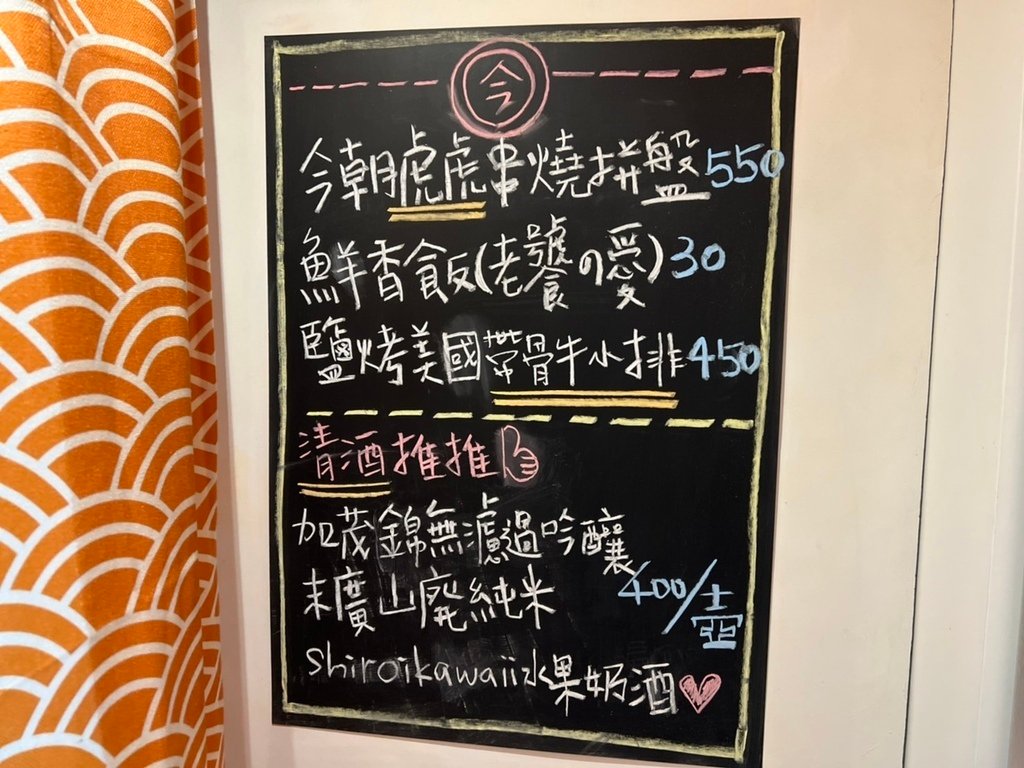 今
今朝虎虎串燒拼盤550
鮮香飯(老饕の愛)30
鹽烤美國帶骨牛小排450
清酒推推
加茂錦無濾過吟釀
末廣山廃純米
400/壺
shiroikawaii水果奶酒